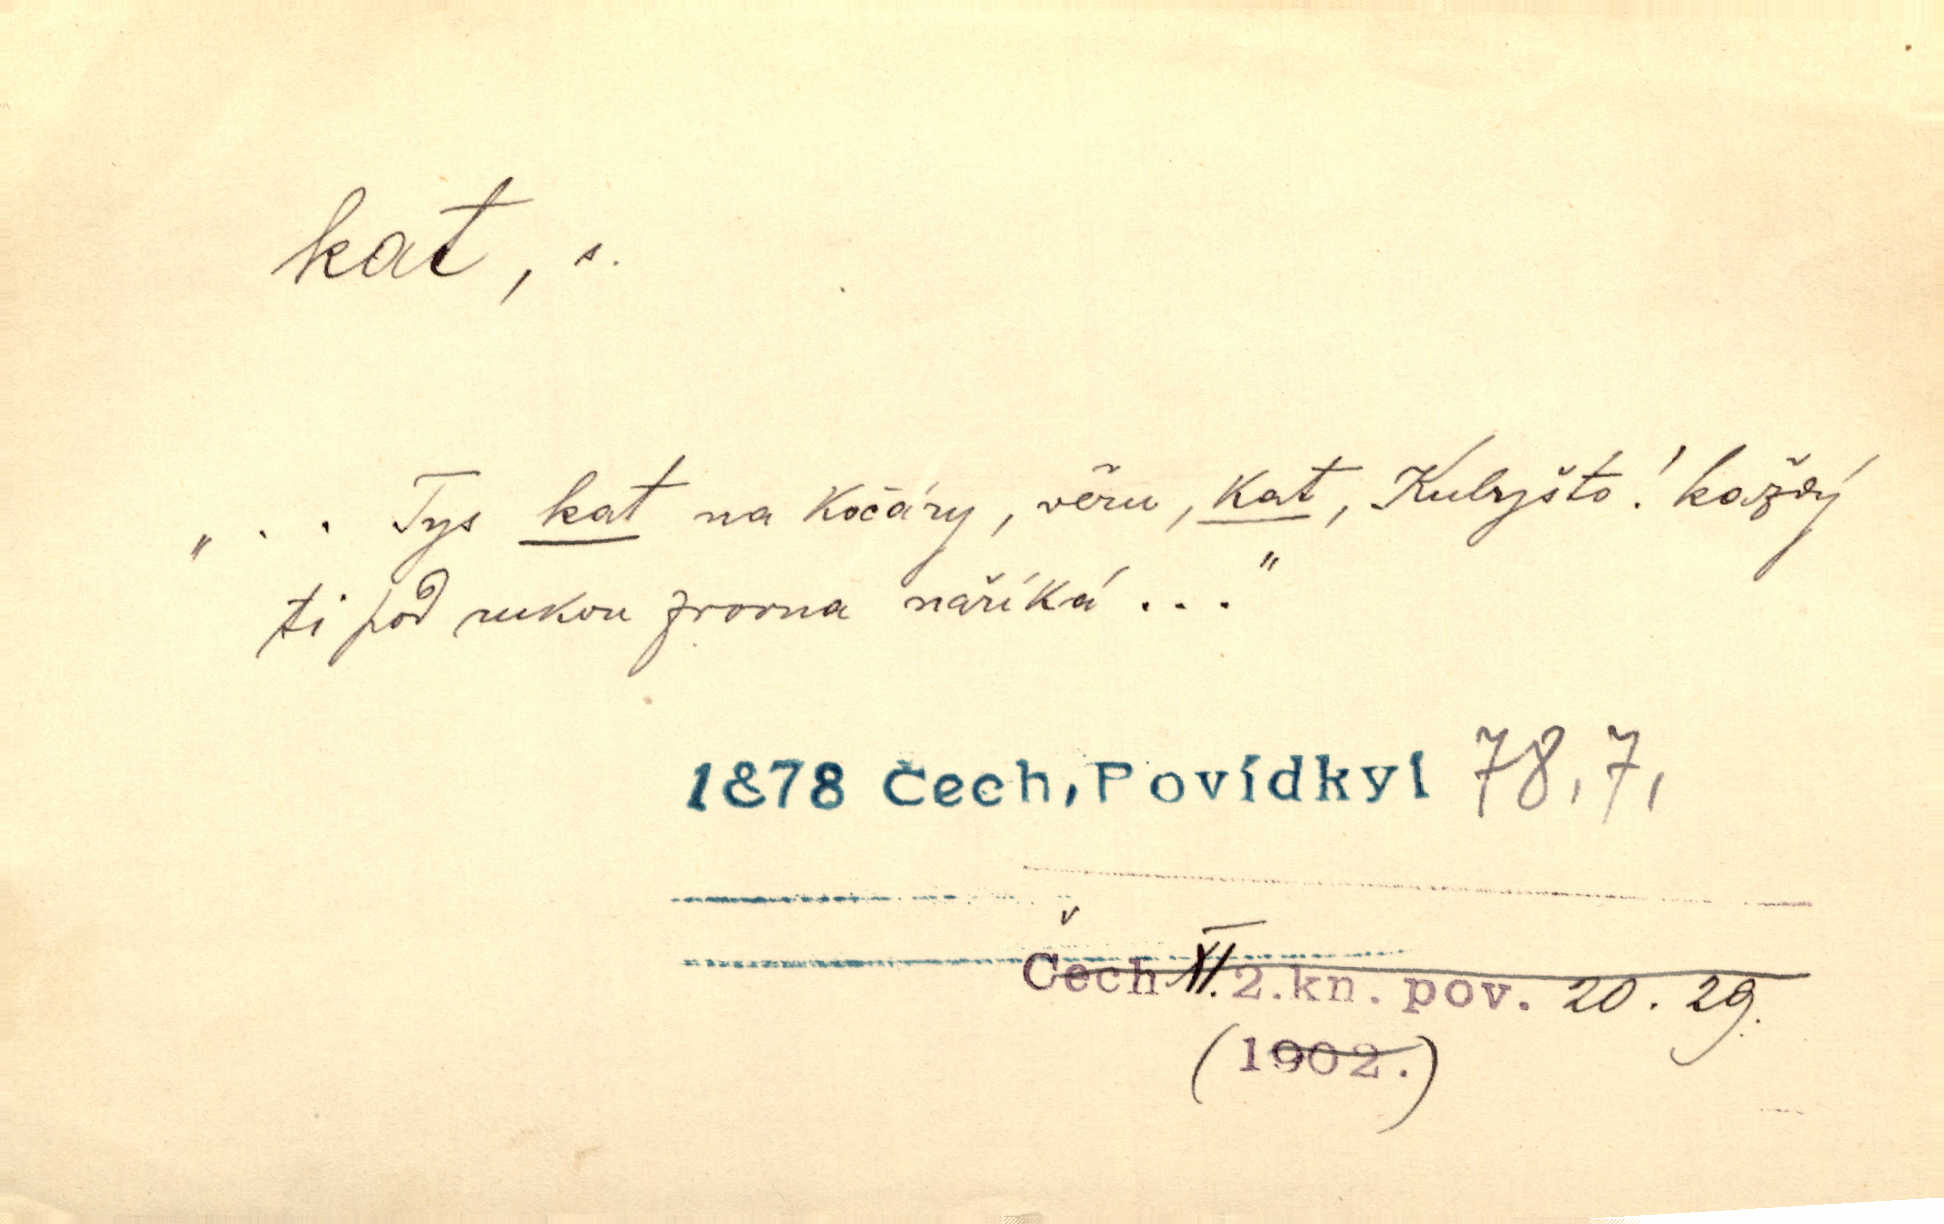 kat, s.
„ . . Tys kat na kočáry, věru, kat, Kubyšto! každý
ti pod rukou zrovna naříká . . ."
1878 Čech, Povídky I 78, 7,
Čech XI. 2. kn. pov. 20. 29.
(1902.)